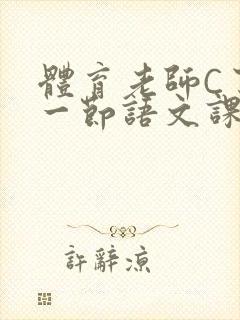 體育老師C
一節語文課
許辭涼